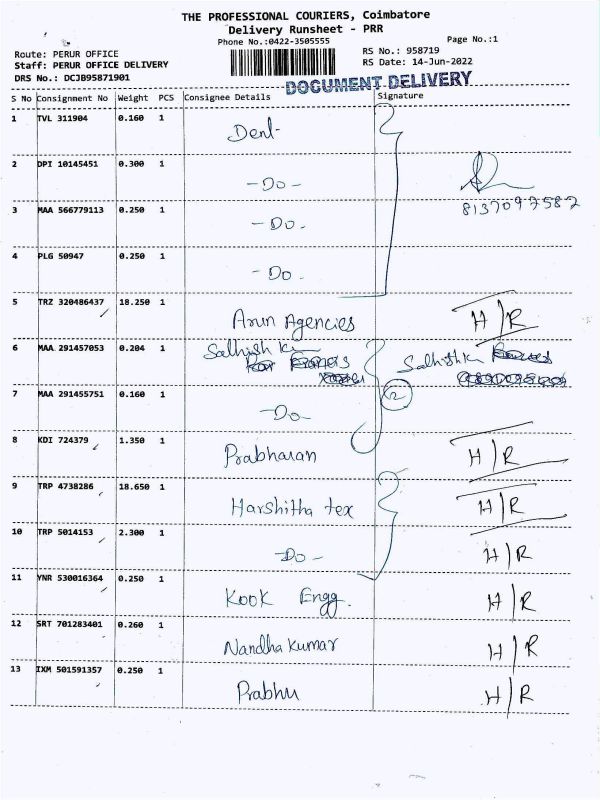 THE PROFESSIONAL COURIERS, Coimbatore
Delivery Runsheet - PRR
Phone No.:0422-3505555 Page No.:1
Route: PERUR OFFICE RS No.: 958719
Staff: PERUR OFFICE DELIVERY RS Date: 14-Jun-2022
DRS No.: DCJB95871901
DOCUMENT DELIVERY
S No Consignment No Weight PCS Consignee Details Signature
1 TVL 311904 0.160 1
2 DPI 10145451 0.300 1 -Do-
8137097587
3 MAA 566779113 0.250 1 -Do-
4 PLG 50947 0.250 1 -Do-
5 TRZ 320486437 18.250 1 Arun Agencies H/R
6 MAA 291457053 0.204 1 Salhish K Salhishk
7 MAA 291455751 0.160 1 -Do- 2
8 KDI 724379 1.350 1 Prabharan H/R
9 TRP 4738286 18.650 1 Harshitha tex H/R
10 TRP 5014153 2.300 1 -Do- H/R
11 YNR 530016364 0.250 1 Kook Engg. H/R
12 SRT 701283401 0.260 1 Nandha kumar H/R
13 IXM 501591357 0.250 1 Prabhu H/R